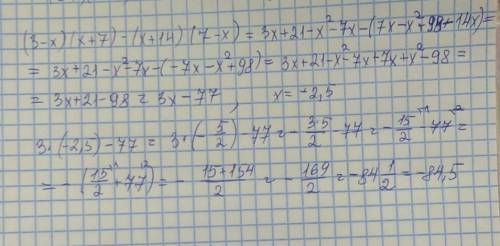 (3-x)(x+7)-(x+14)(7-x)=3x+21-x²-7x-(7x-x²+98-14x)=
=3x+21-x²-7x-(-7x-x²+98)=3x+21-x²-7x+7x+x²-98=
=3x+21-98=3x-77, x=-2,5
3·(-2,5)-77=3·(-5/2)-77=-3·5/2-77=-15/2-77=
=-(15/2+77)=-15+154/2=-169/2=-84 1/2=-84,5